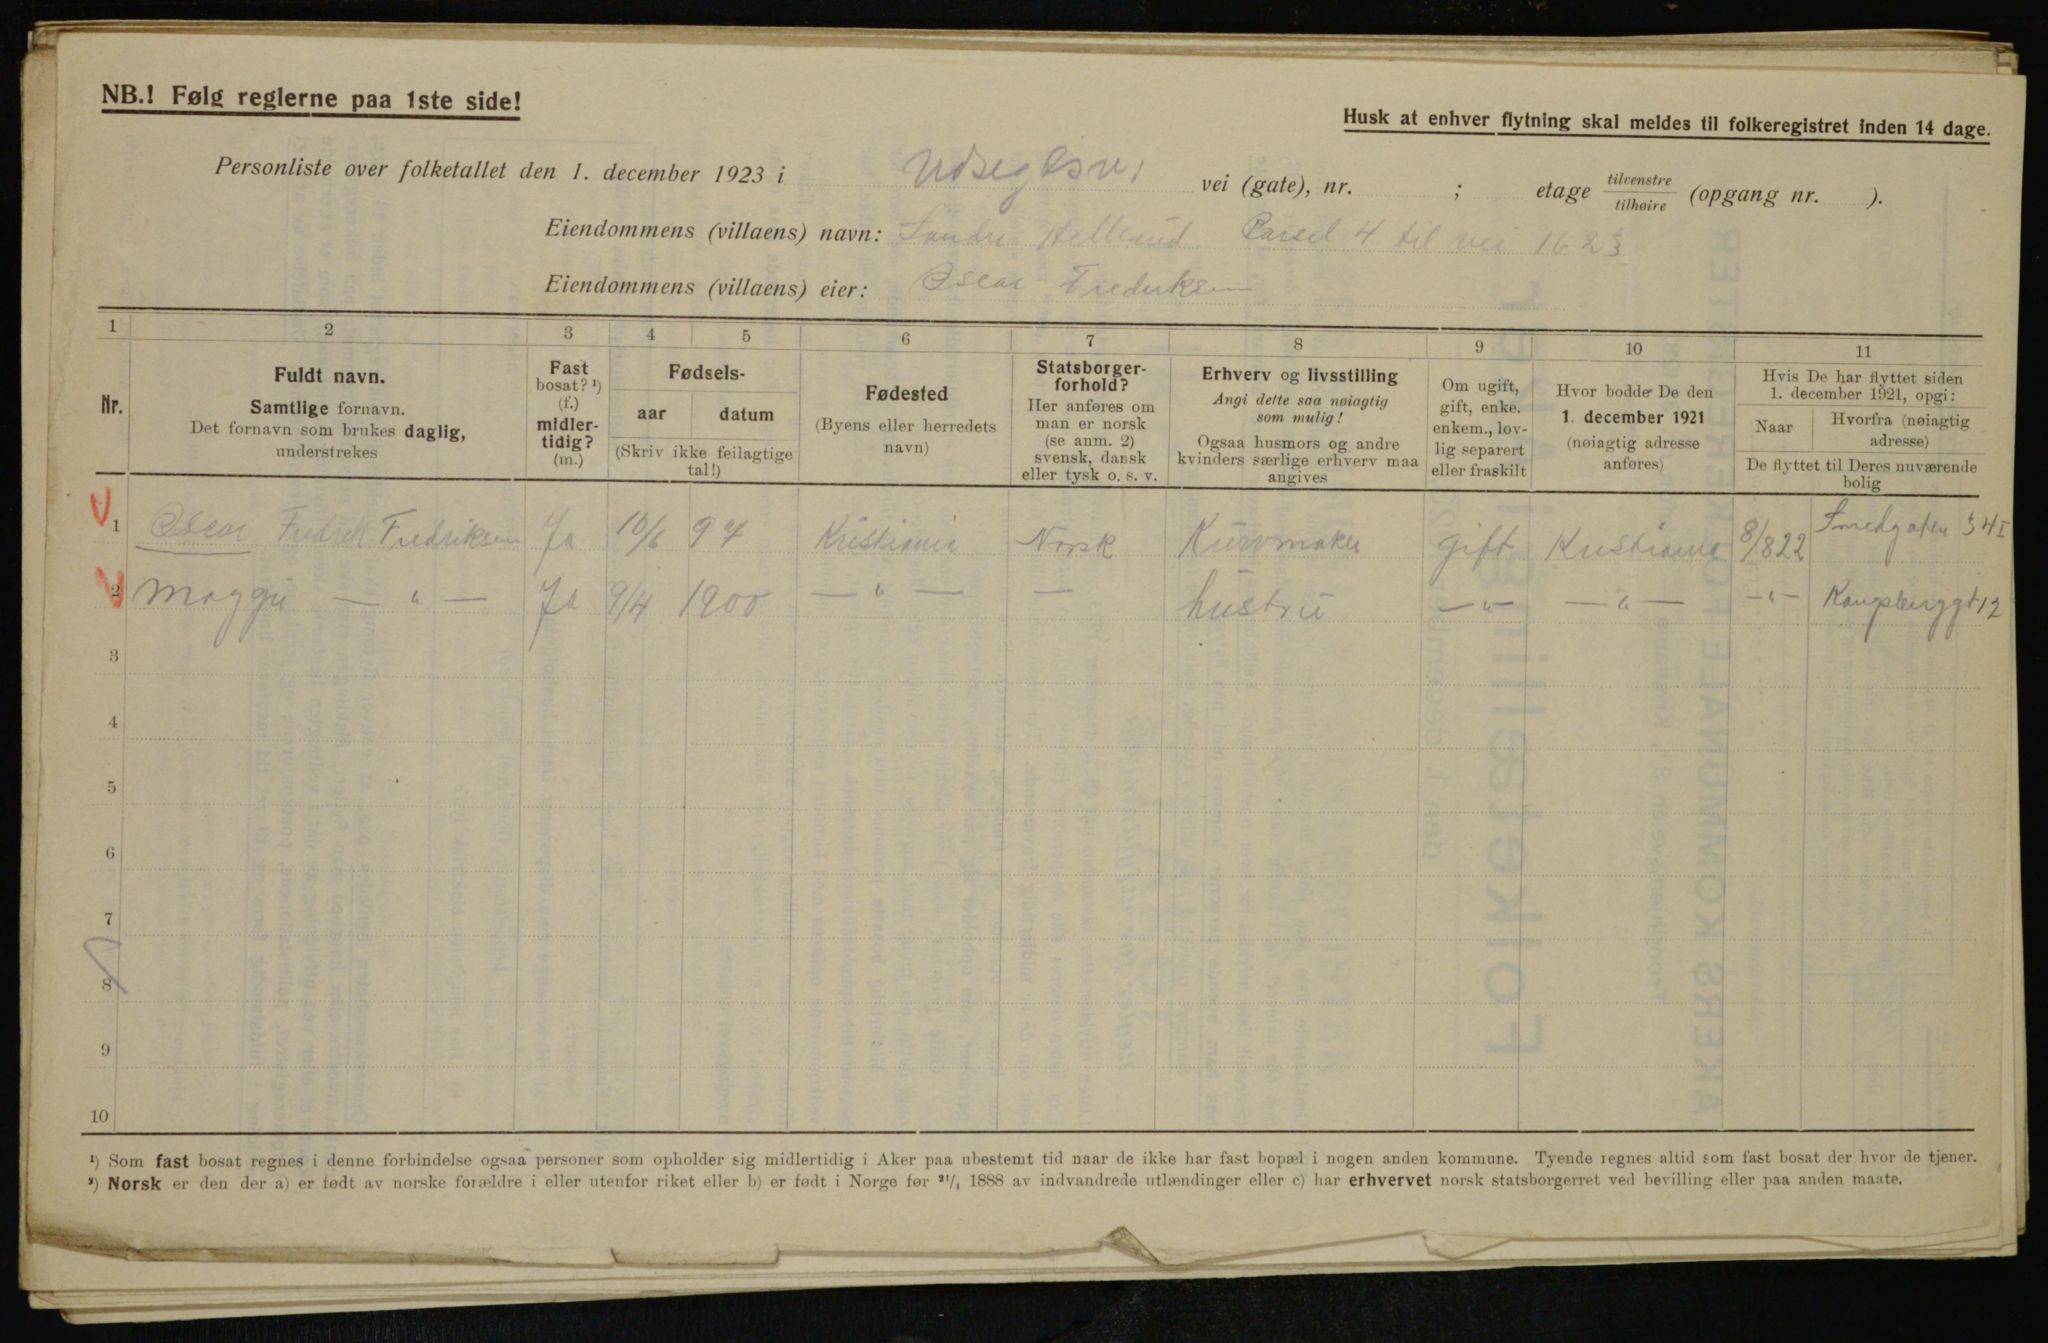 NB.! Følg reglerne paa 1ste side!
Husk at enhver flytning skal meldes til folkeregistret inden 14 dage.
Personliste over folketallet den 1. december 1923 i vei (gate), nr. ; etage tilvenstre tilhøire (opgang nr. ).
Eiendommens (villaens) navn: Parsel 4 til vei 162
Eiendommens (villaens) eier: Oscar Fredriksen
1 2 3 4 5 6 7 8 9 10 11
Nr.
Fuldt navn.
Samtlige fornavn.
Det fornavn som brukes daglig,
understrekes
Fast
bosat? ¹)
(f.)
midler-
tidig?
(m.)
Fødsels-
aar datum
(Skriv ikke feilagtige
tal!)
Fødested
(Byens eller herredets
navn)
Statsborger-
forhold?
Her anføres om
man er norsk
(se anm. 2)
svensk, dansk
eller tysk o. s. v.
Erhverv og livsstilling
Angi dette saa nøiagtig
som mulig!
Ogsaa husmors og andre
kvinders særlige erhverv maa
angives
Om ugift,
gift, enke.
enkem., lov-
lig separert
eller fraskilt
Hvor bodde De den
1. december 1921
(nøiagtig adresse
anføres)
Hvis De har flyttet siden
1. december 1921, opgi:
Naar
Hvorfra (nøiagtig
adresse)
De flyttet til Deres nuværende
bolig
1 Oscar Fredrik Fredriksen Ja 10/6 97 Kristiania Norsk Kurvmaker gift Kristiania 8/8 22 Smedgaten 34 I
2 Maggie — " — Ja 9/4 1900 — " — — hustru — " — — " — — " — Kongsberggt 12
3
4
5
6
7
8
9
10
¹) Som fast bosat regnes i denne forbindelse ogsaa personer som opholder sig midlertidig i Aker paa ubestemt tid naar de ikke har fast bopæl i nogen anden kommune. Tyende regnes altid som fast bosat der hvor de tjener.
²) Norsk er den der a) er født av norske forældre i eller utenfor riket eller b) er født i Norge før ²¹/₄ 1888 av indvandrede utlændinger eller c) har erhvervet norsk statsborgerret ved bevilling eller paa anden maate.